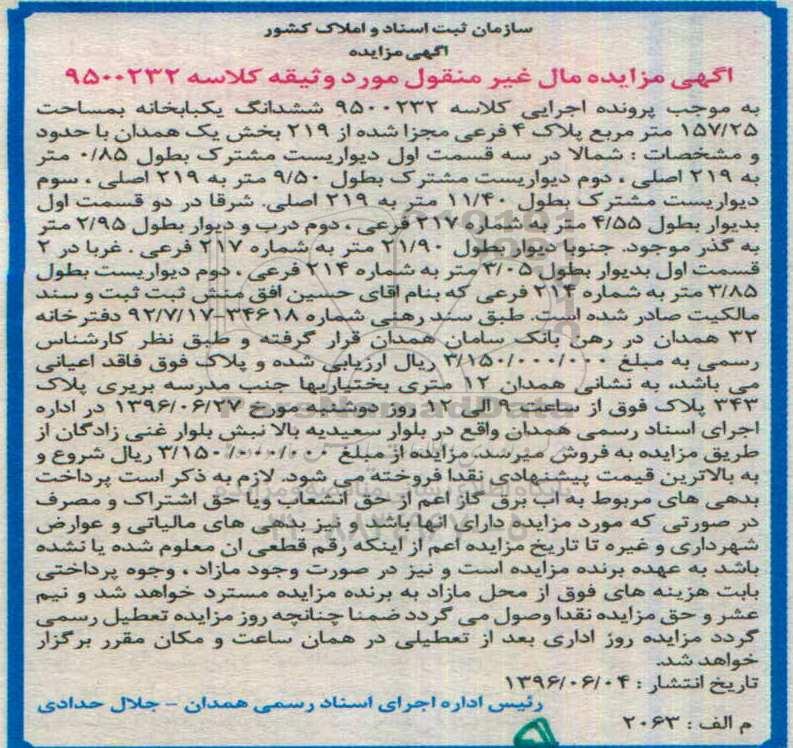 سازمان ثبت اسناد و املاک کشور
آگهی مزایده
آگهی مزایده مال غیر منقول مورد وثیقه کلاسه ۹۵۰۰۲۳۲
به موجب پرونده اجرایی کلاسه ۹۵۰۰۲۳۲ ششدانگ یکبابخانه بمساحت
۱۵۷/۲۵ متر مربع پلاک ۴ فرعی مجزا شده از ۲۱۹ بخش یک همدان با حدود
و مشخصات : شمالا در سه قسمت اول دیواریست مشترک بطول ۰/۸۵ متر
به ۲۱۹ اصلی ، دوم دیواریست مشترک بطول ۹/۵۰ متر به ۲۱۹ اصلی ، سوم
دیواریست مشترک بطول ۱۱/۴۰ متر به ۲۱۹ اصلی. شرقا در دو قسمت اول
بدیوار بطول ۴/۵۵ متر به شماره ۲۱۷ فرعی ، دوم درب و دیوار بطول ۲/۹۵ متر
به گذر موجود. جنوبا دیوار بطول ۲۱/۹۰ متر به شماره ۲۱۷ فرعی . غربا در ۲
قسمت اول بدیوار بطول ۳/۰۵ متر به شماره ۲۱۴ فرعی ، دوم دیواریست بطول
۳/۸۵ متر به شماره ۲۱۴ فرعی که بنام اقای حسین افق منش ثبت ثبت و سند
مالکیت صادر شده است. طبق سند رهنی شماره ۳۴۶۱۸-۹۲/۷/۱۷ دفترخانه
۳۲ همدان در رهن بانک سامان همدان قرار گرفته و طبق نظر کارشناس
رسمی به مبلغ ۳/۱۵۰/۰۰۰/۰۰۰ ریال ارزیابی شده و پلاک فوق فاقد اعیانی
می باشد، به نشانی همدان ۱۲ متری بختیاریها جنب مدرسه بریری پلاک
۳۴۳ پلاک فوق از ساعت ۹ الی ۱۲ روز دوشنبه مورخ ۱۳۹۶/۰۶/۲۷ در اداره
اجرای اسناد رسمی همدان واقع در بلوار سعیدیه بالا نبش بلوار غنی زادگان از
طریق مزایده به فروش میرسد. مزایده از مبلغ ۳/۱۵۰/۰۰۰/۰۰۰ ریال شروع و
به بالاترین قیمت پیشنهادی نقدا فروخته می شود. لازم به ذکر است پرداخت
بدهی های مربوط به اب برق گاز اعم از حق انشعاب ویا حق اشتراک و مصرف
در صورتی که مورد مزایده دارای انها باشد و نیز بدهی های مالیاتی و عوارض
شهرداری و غیره تا تاریخ مزایده اعم از اینکه رقم قطعی ان معلوم شده یا نشده
باشد به عهده برنده مزایده است و نیز در صورت وجود مازاد ، وجوه پرداختی
بابت هزینه های فوق از محل مازاد به برنده مزایده مسترد خواهد شد و نیم
عشر و حق مزایده نقدا وصول می گردد ضمنا چنانچه روز مزایده تعطیل رسمی
گردد مزایده روز اداری بعد از تعطیلی در همان ساعت و مکان مقرر برگزار
خواهد شد.
تاریخ انتشار : ۱۳۹۶/۰۶/۰۴
رئیس اداره اجرای اسناد رسمی همدان - جلال حدادی
م الف : ۲۰۶۳
ParsNamadData